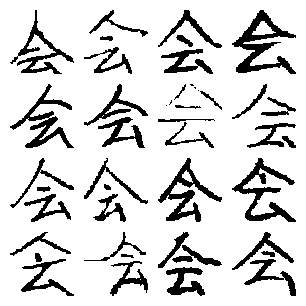 会会会会
会会会会
会会会会
会会会会